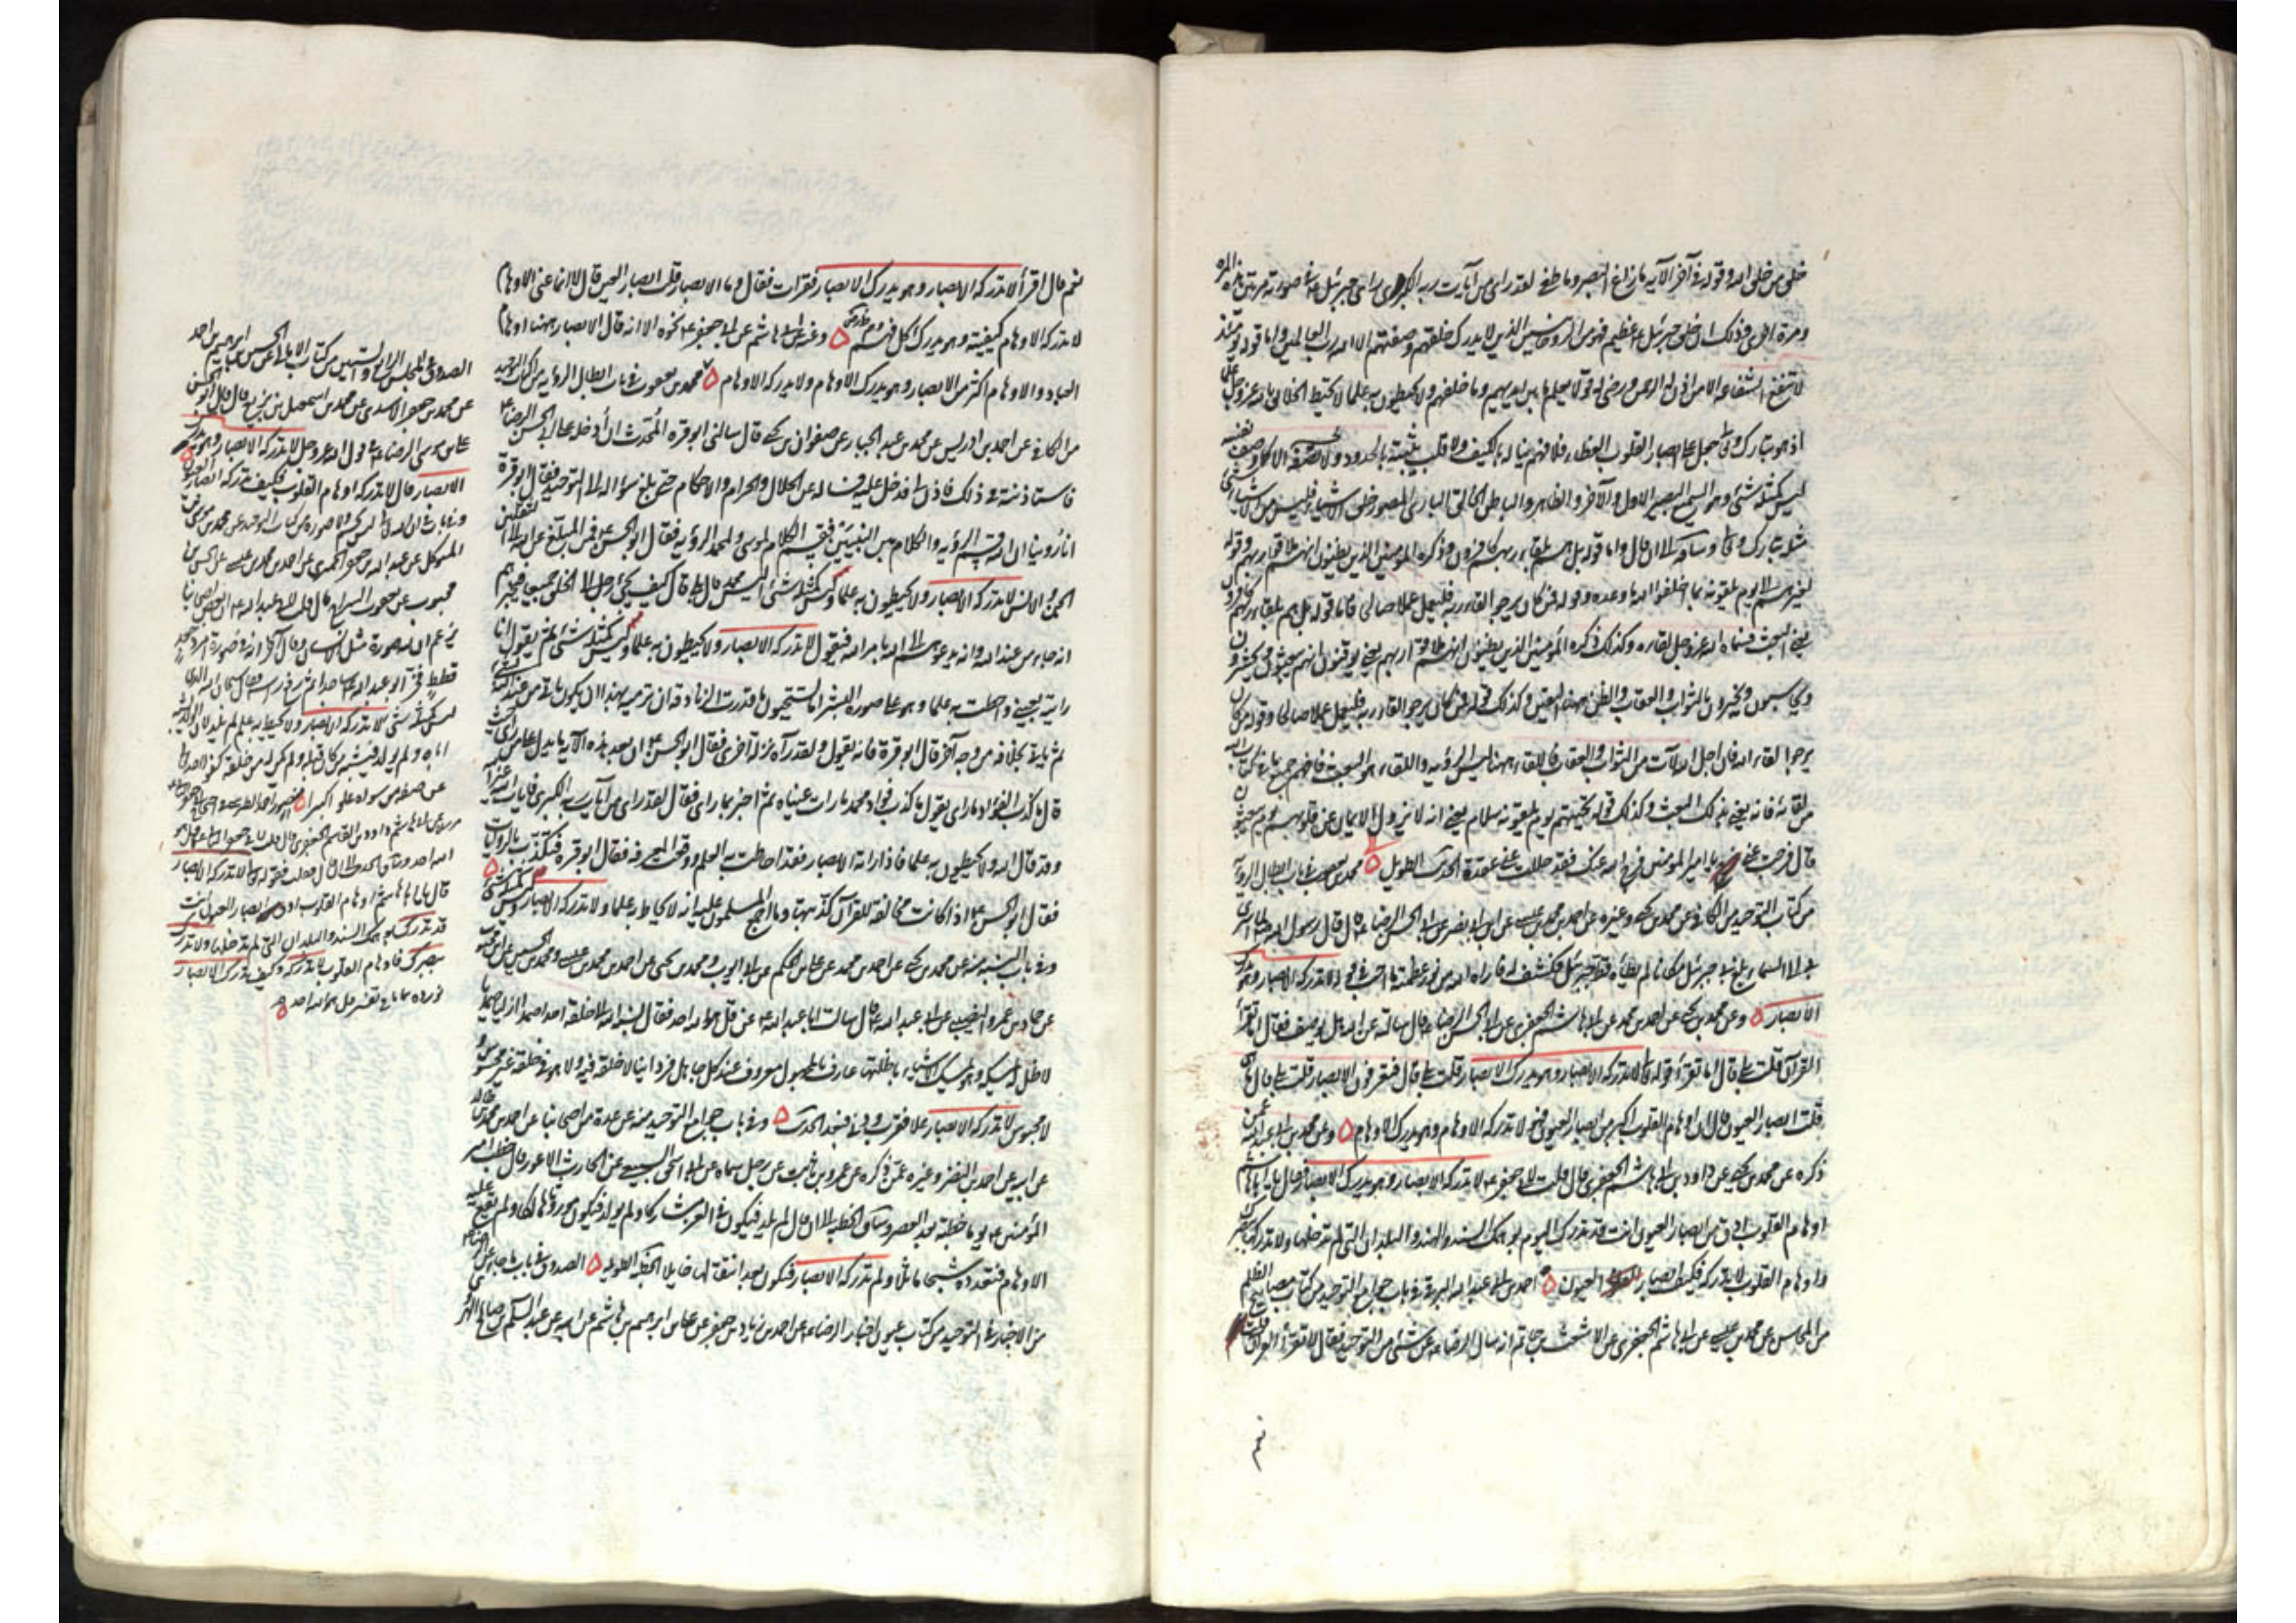 خلق من خلق الله وقوله في آخر الآية ما زاغ البصر وما طغى لقد رأى من آيات ربه الكبرى رأى جبرئيل في صورته مرتين هذه المرة
ومرة اخرى وذلك ان خلق جبرئيل عظيم فهو من الروحانيين الذين لا يدرك خلقهم وصفتهم الا الله رب العالمين واما قوله يومئذ
لا تنفع الشفاعة الا من اذن له الرحمن ورضي له قولا يعلم ما بين ايديهم وما خلفهم ولا يحيطون به علما لا يحيط الخلائق بالله عز وجل علما
اذ هو تبارك وتعالى جعل على ابصار القلوب الغطاء فلا فهم يناله بالكيف ولا قلب يثبته بالحدود ولا نصفه الا كما وصف نفسه
ليس كمثله شئ وهو السميع البصير الاول والآخر والظاهر والباطن الخالق البارئ المصور خلق الاشياء فليس من الاشياء شئ
مثله تبارك وتعالى وساقه الى ان قال واما قوله بل هم بلقاء ربهم كافرون وذكره المؤمنين الذين يظنون انهم ملاقوا ربهم وقوله
لغيرهم الى يوم يلقونه بما اخلفوا الله ما وعدوه وقوله فمن كان يرجو لقاء ربه فليعمل عملا صالحا فاما قوله بل هم بلقاء ربهم كافرون
يعني البعث فسماه الله عز وجل لقاءه وكذلك ذكره المؤمنين الذين يظنون انهم ملاقوا ربهم يعني يوقنون انهم يبعثون ويحشرون
ويحاسبون ويجزون بالثواب والعقاب والظن ههنا اليقين وكذلك قوله فمن كان يرجو لقاء ربه فليعمل عملا صالحا وقوله من كان
يرجوا لقاء الله فان اجل الله لآت من الثواب والعقاب فاللقاء ههنا ليس الرؤية واللقاء هو البعث فافهم جميع ما في كتاب الله
من لقائه فانه يعني بذلك البعث وكذلك قوله تحيتهم يوم يلقونه سلام يعني انه لا يزول الايمان عن قلوبهم يوم يبعثون
قال فرجت عني يا امير المؤمنين فرج الله عنك فقد حللت عني عقدة الحديث الطويل محمد بن يعقوب في باب ابطال الرؤية
من كتاب التوحيد من الكافي عن محمد بن يحيى وغيره عن احمد بن محمد بن عيسى عن ابن ابي نصر عن ابي الحسن الرضا ع قال قال رسول الله لما اسرى
بي الى السماء بلغ بي جبرئيل مكانا لم يطأه قط جبرئيل فكشف له فاراه الله من نور عظمته ما احب في قوله لا تدركه الابصار وهو يدرك
الابصار وعن محمد بن يحيى عن احمد بن محمد عن ابي هاشم الجعفري عن ابي الحسن الرضا ع قال سألته عن الله هل يوصف فقال اما تقرأ
القرآن قلت بلى قال اما تقرأ قوله تعالى لا تدركه الابصار وهو يدرك الابصار قلت بلى قال فتعرفون الابصار قلت بلى قال ما هي
قلت ابصار العيون قال ان اوهام القلوب اكبر من ابصار العيون فهو لا تدركه الاوهام وهو يدرك الاوهام وعن محمد بن ابي عبد الله عمن
ذكره عن محمد بن عيسى عن داود بن ابي هاشم الجعفري قال قلت لابي جعفر ع لا تدركه الابصار وهو يدرك الابصار فقال يا ابا هاشم
اوهام القلوب ادق من ابصار العيون انت قد تدرك اليوم بوهمك السند والهند والبلدان التي لم تدخلها ولا تدركها ببصرك
واوهام القلوب لا تدركه فكيف ابصار العيون احمد بن ابي عبد الله البرقي في باب جوامع التوحيد من كتاب مصابيح الظلم
من المحاسن عن محمد بن عيسى عن ابي هاشم الجعفري عن الاشعث بن حاتم انه سأل الرضا ع عن شئ من التوحيد فقال الا تقرأ القرآن قلت
نعم
نعم قال اقرأ لا تدركه الابصار وهو يدرك الابصار فقرأت فقال وما الابصار قلت ابصار العين قال لا انما عنى الاوهام
لا تدركه الاوهام كيفيته وهو يدرك كل فهم وعن ابي هاشم عن ابي جعفر ع نحوه الا انه قال الابصار ههنا اوهام
العباد والاوهام اكثر من الابصار وهو يدرك الاوهام ولا تدركه الاوهام محمد بن يعقوب في باب ابطال الرؤية من كتاب التوحيد
من الكافي عن احمد بن ادريس عن محمد بن عبد الجبار عن صفوان بن يحيى قال سألني ابو قرة المحدث ان أدخله على ابي الحسن الرضا ع
فاستأذنته في ذلك فاذن لي فدخل عليه فسأله عن الحلال والحرام والاحكام حتى بلغ سؤاله الى التوحيد فقال ابو قرة
انا روينا ان الله قسم الرؤية والكلام بين النبيين فقسم الكلام لموسى ولمحمد الرؤية فقال ابو الحسن فمن المبلغ عن الله الى الثقلين
الجن والانس لا تدركه الابصار ولا يحيطون به علما وليس كمثله شئ أليس محمد قال بلى قال كيف يجئ رجل الى الخلق جميعا فيخبرهم
انه جاء من عند الله وانه يدعوهم الى الله بامر الله فيقول لا تدركه الابصار ولا يحيطون به علما وليس كمثله شئ ثم يقول انا
رأيته بعيني واحطت به علما وهو على صورة البشر اما تستحيون ما قدرت الزنادقة ان ترميه بهذا ان يكون يأتي من عند الله بشئ
ثم يأتي بخلافه من وجه آخر قال ابو قرة فانه يقول ولقد رآه نزلة اخرى فقال ابو الحسن ع ان بعد هذه الآية ما يدل على ما رأى حيث
قال ما كذب الفؤاد ما رأى يقول ما كذب فؤاد محمد ما رأت عيناه ثم اخبر بما رأى فقال لقد رأى من آيات ربه الكبرى فآيات الله غير الله
وقد قال الله ولا يحيطون به علما فاذا رأته الابصار فقد احاطت به العلم ووقعت المعرفة فقال ابو قرة فتكذب بالروايات
فقال ابو الحسن ع اذا كانت مخالفة للقرآن كذبتها وما اجمع المسلمون عليه انه لا يحاط به علما ولا تدركه الابصار وليس كمثله شئ
وفي باب النسبة منه عن محمد بن يحيى عن احمد بن محمد عن علي بن الحكم عن ابي ايوب ومحمد بن يحيى عن احمد بن محمد بن عيسى ومحمد بن الحسين عن ابن محبوب
عن حماد بن عمرو النصيبي عن ابي عبد الله ع قال سألت ابا عبد الله ع عن قل هو الله احد فقال نسبة الله الى خلقه احدا صمدا ازليا صمديا
لا ظل له يمسكه وهو يمسك الاشياء باظلتها عارف بالمجهول معروف عند كل جاهل فردانيا لا خلقه فيه ولا هو في خلقه غير محسوس
ولا مجسوس لا تدركه الابصار علا فقرب ودنا فبعد الحديث وفي باب جوامع التوحيد منه عن عدة من اصحابنا عن احمد بن محمد بن خالد
عن ابيه عن احمد بن النضر وغيره عمن ذكره عن عمرو بن ثابت عن رجل سماه عن ابي اسحق السبيعي عن الحارث الاعور قال خطب امير
المؤمنين ع يوما خطبة بعد العصر وساق الخطبة الى ان قال لم يلد فيكون في العز مشاركا ولم يولد فيكون موروثا هالكا ولم تقع عليه
الاوهام فتقدره شبحا ماثلا ولم تدركه الابصار فيكون بعد انتقالها حائلا الخطبة الطويلة الصدوق في باب ما جاء عن الرضا ع
من الاخبار في التوحيد من كتاب عيون اخبار الرضا ع عن احمد بن زياد بن جعفر عن علي بن ابرهيم بن هاشم عن ابيه عن عبد السلم بن صالح الهروي
الصدوق في المجلس الرابع والستين من كتاب الامالي عن الحسين بن ابرهيم بن احمد
عن محمد بن جعفر الاسدي عن محمد بن اسمعيل بن بزيع قال قال ابو الحسن
علي بن موسى الرضا ع في قول الله عز وجل لا تدركه الابصار وهو يدرك
الابصار قال لا تدركه اوهام القلوب فكيف تدركه ابصار العيون
وفي باب ان الله تعالى ليس بجسم ولا صورة من كتاب التوحيد عن محمد بن موسى بن
المتوكل عن عبد الله بن جعفر الحميري عن احمد بن محمد بن عيسى عن الحسن بن
محبوب عن يعقوب السراج قال قلت لابي عبد الله ع ان بعض اصحابنا
يزعم ان لله صورة مثل الانسان وقال آخر انه في صورة امرد جعد
قطط فخر ابو عبد الله ساجدا ثم رفع رأسه فقال سبحان الله الذي
ليس كمثله شئ لا تدركه الابصار ولا يحيط به علم لم يلد لان الولد يشبه
اباه ولم يولد فيشبه من كان قبله ولم يكن له من خلقه كفوا احد تعالى
عن صفة من سواه علوا كبيرا
عن ابي هاشم داود بن القاسم الجعفري قال قلت لابي جعفر الثاني ع قل هو
الله احد وساق الحديث الى ان قال فقلت فقوله تعالى لا تدركه الابصار
قال يا ابا هاشم اوهام القلوب ادق من ابصار العيون انت
قد تدرك بوهمك السند والبلدان التي لم تدخلها ولا تدرك
ببصرك فاوهام القلوب لا تدركه وكيف تدركه الابصار